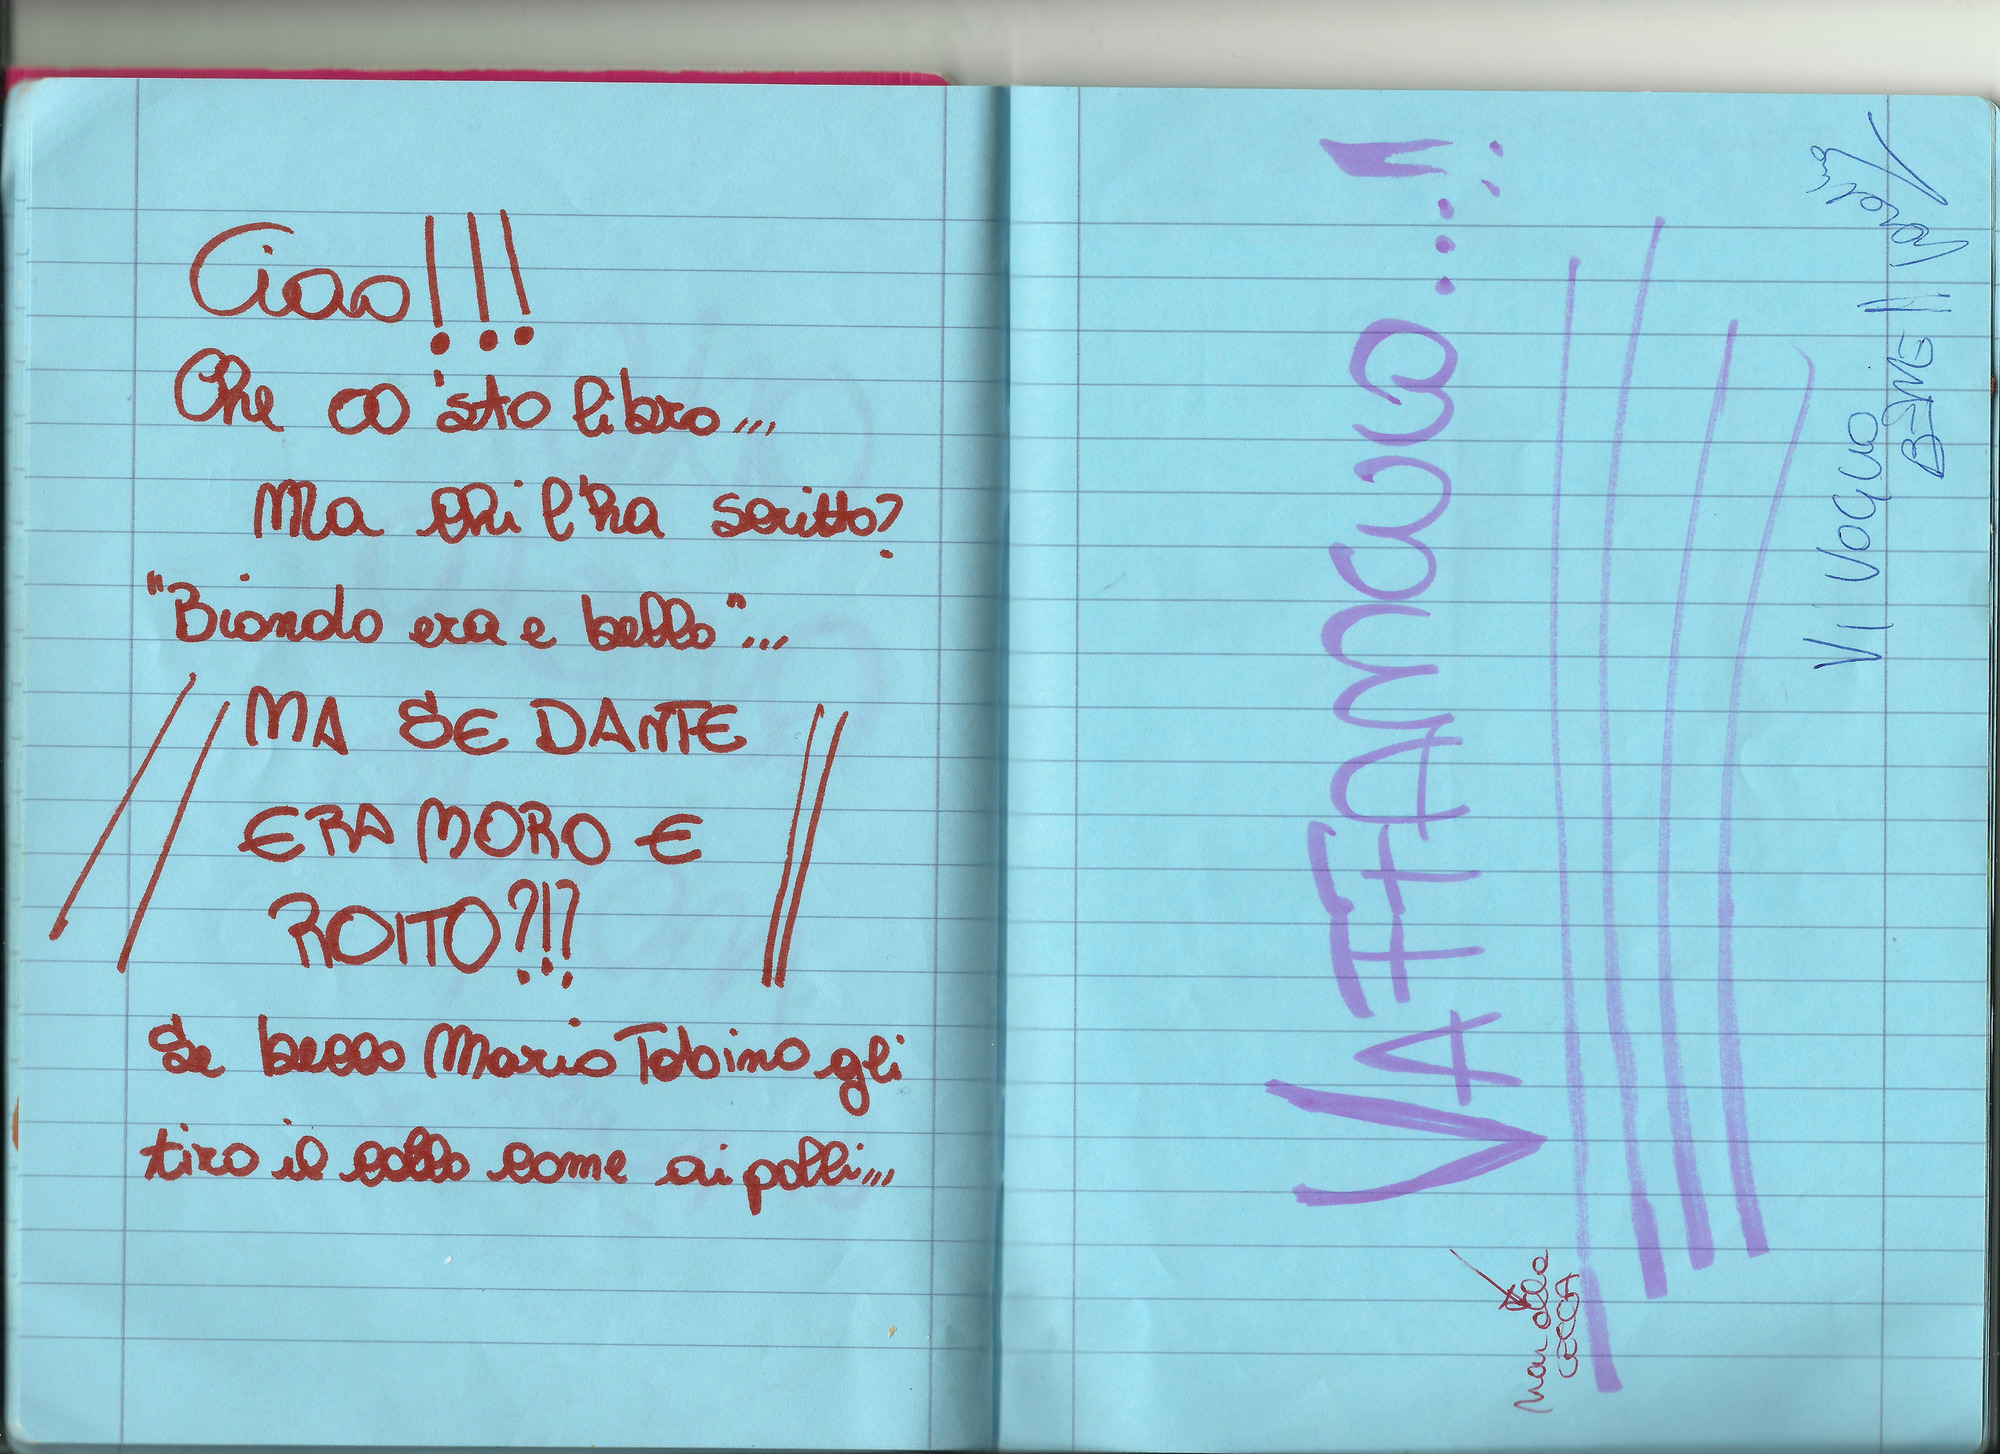 Ciao!!!
Che co 'sto libro...
Ma chi l'ha scritto?
"Biondo era e bello"...
MA SE DANTE
ERA MORO E
ROITO?!?
Se becco Mario Tobino gli
tiro il collo come ai polli...
VAFFANCULO...!!
VI VOGLIO
BENE!!
COCCA